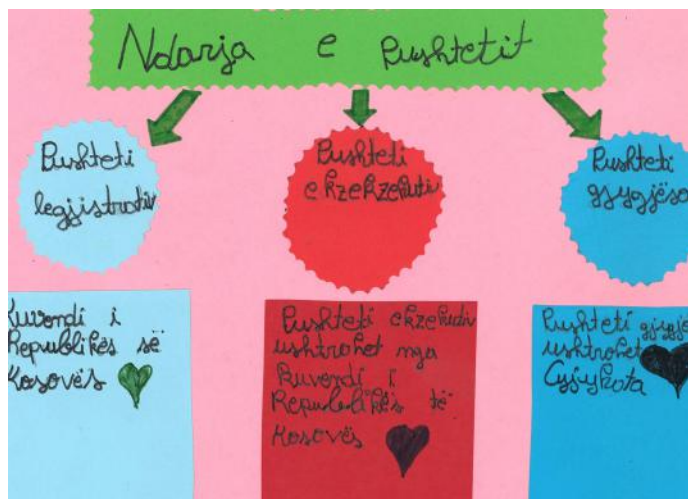 Ndarja e Pushtetit
Pushteti
legjistrativ
Pushteti
ekzekzekutiv
Pushteti
gjygjëso
Kuvendi i
Republikës së
Kosovës
Pushteti ekzekutiv
ushtrohet nga
Kuvendi i
Republikës të
Kosovës
Pushteti gjygjë
ushtrohet
Gjykata